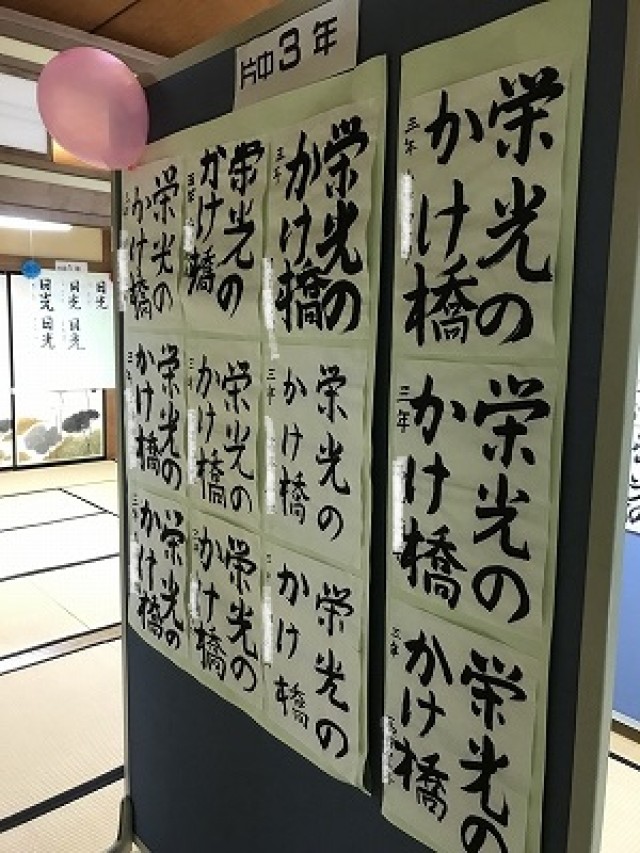 片中3年
栄光の
かけ橋
三年
栄光の
かけ橋
三年
栄光の
かけ橋
三年
栄光の
かけ橋
三年
栄光の
かけ橋
三年
栄光の
かけ橋
三年
栄光の
かけ橋
三年
栄光の
かけ橋
三年
栄光の
かけ橋
栄光の
かけ橋
三年
栄光の
かけ橋
三年
栄光の
かけ橋
三年
日光
日光
日光
日光
日光